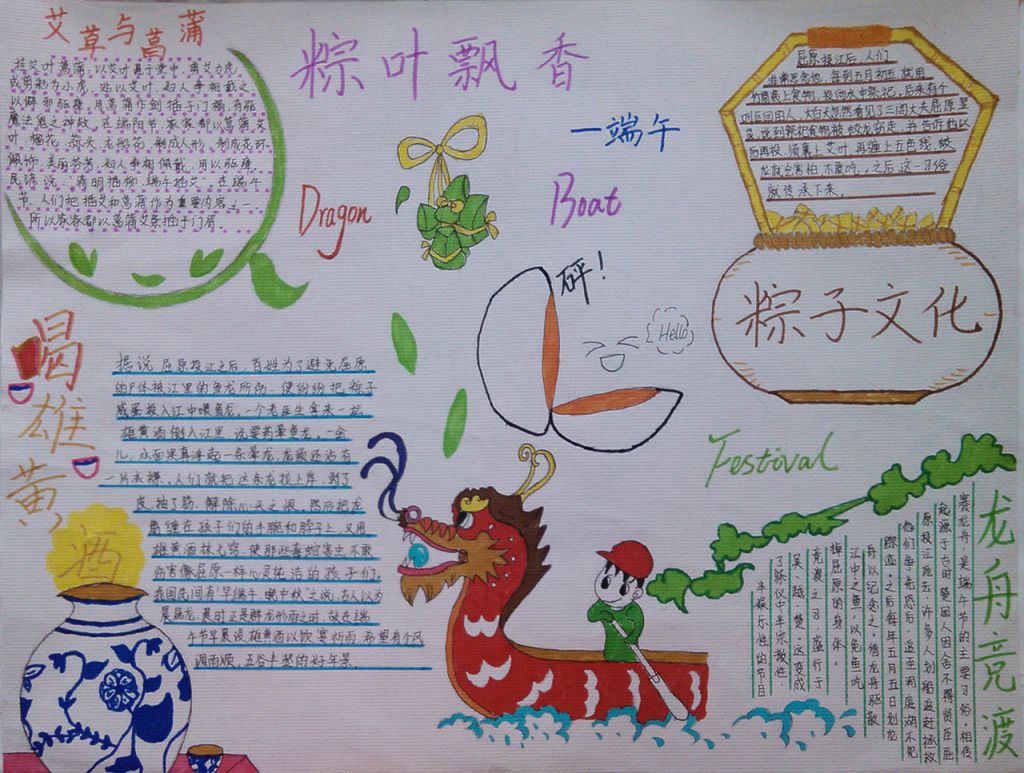 艾草与菖蒲
挂艾叶菖蒲,以艾叶悬于堂中,剪艾为虎,
或剪彩为小虎,贴以艾叶,妇人争相戴之
以僻邪驱瘴,用菖蒲作剑插于门楣,有驱
魔法鬼之神效,在端阳节,家家都以菖蒲艾
叶,榴花,蒜头,龙船花,制成人形,制成花环
佩饰,美丽芬芳,妇人争相佩戴,用以驱瘴
民谚说:清明插柳,端午插艾。在端午
节,人们把插艾和菖蒲作为重要内容之一。
所以家家都以菖蒲艾条插于门眉。
粽叶飘香
一端午
Dragon
Boat
Festival
砰!
Hello
屈原投江后,人们
非常思念他,每到五月初五,就用
竹筒装上食物,投向水中祭祀,后来有个
叫区回的人,大白天忽然看见了三闾大夫屈原显
灵,说到祭祀食物被蛟龙窃走,并告诉他以
后再投,须裹上艾叶,再缠上五色线,蛟
龙就会害怕不敢吃。之后这一习俗
就传承下来。
粽子文化
喝雄黄酒
据说屈原投江之后,百姓为了避免屈原
的尸体被江里的鱼龙所伤,便纷纷把粽子
咸蛋投入江中喂鱼龙。一个老医生拿来一坛
雄黄酒倒入江里,说要药晕鱼龙。一会
儿,水面果真浮起一条晕龙,龙须还沾有
一片衣襟。人们就把这条龙拉上岸,剥了
皮,抽了筋,解除心头之恨。然后把龙
筋缠在孩子们的手腕和脖子上,又用
雄黄酒抹七窍,使那些毒蛇害虫不敢
伤害像屈原一样心灵纯洁的孩子们。
我国民间有"早端午,晚中秋"之说,古人以为
晨属龙,晨时正是群龙形雨之时,故在端
午节早晨设雄黄酒以饮宴祈雨,希望有个风
调雨顺,五谷丰登的好年景。
龙舟竞渡
赛龙舟,是端午节的主要习俗。相传
起源于古时楚国人因舍不得贤臣屈
原投江死去,许多人划船追赶拯救
他们争先恐后,追至洞庭湖不见
踪迹。之后每年五月五日划龙
舟以纪念之。借龙舟驱散
江中之鱼,以免鱼吃
掉屈原的身体。
竞渡之习,盛行于
吴、越、楚。这变成
了祭仪中半宗教性、
半娱乐性的节目